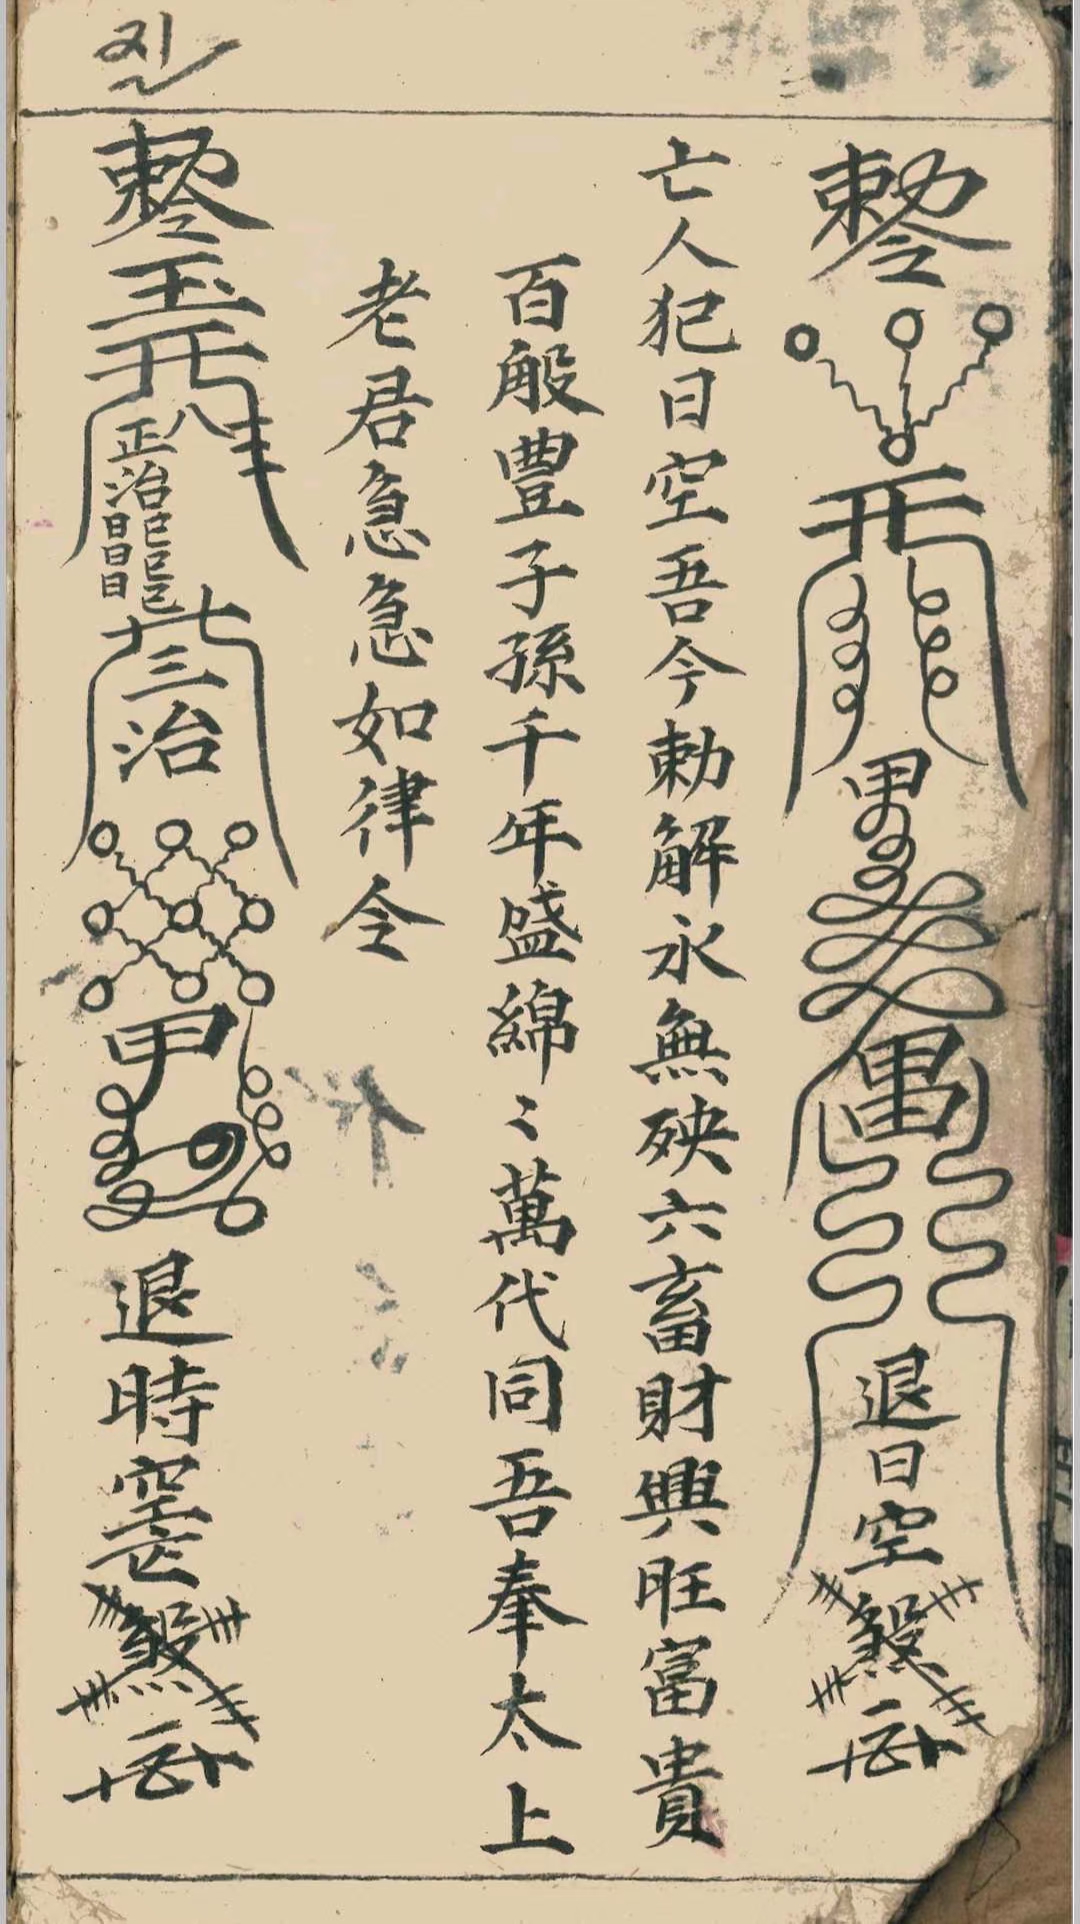 敕令
男
退日空煞
亡人犯日空吾今勅解永無殃六畜財興旺富貴
百般豐子孫千年盛綿〻萬代同吾奉太上
老君急急如律令
敕令玉
八
正治
昌
三治
甲
退時空亡煞